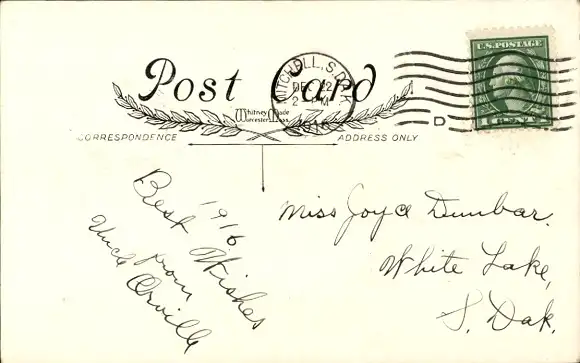 Post Card
MITCHELL, S. DAK.
DEC 22
2 PM
1916
U.S. POSTAGE
1 CENT 1
Whitney Made
Worcester Mass
D
CORRESPONDENCE
ADDRESS ONLY
1916
Best Wishes
from
Uncle Orville
Miss Joyce Dunbar.
White Lake,
S. Dak.